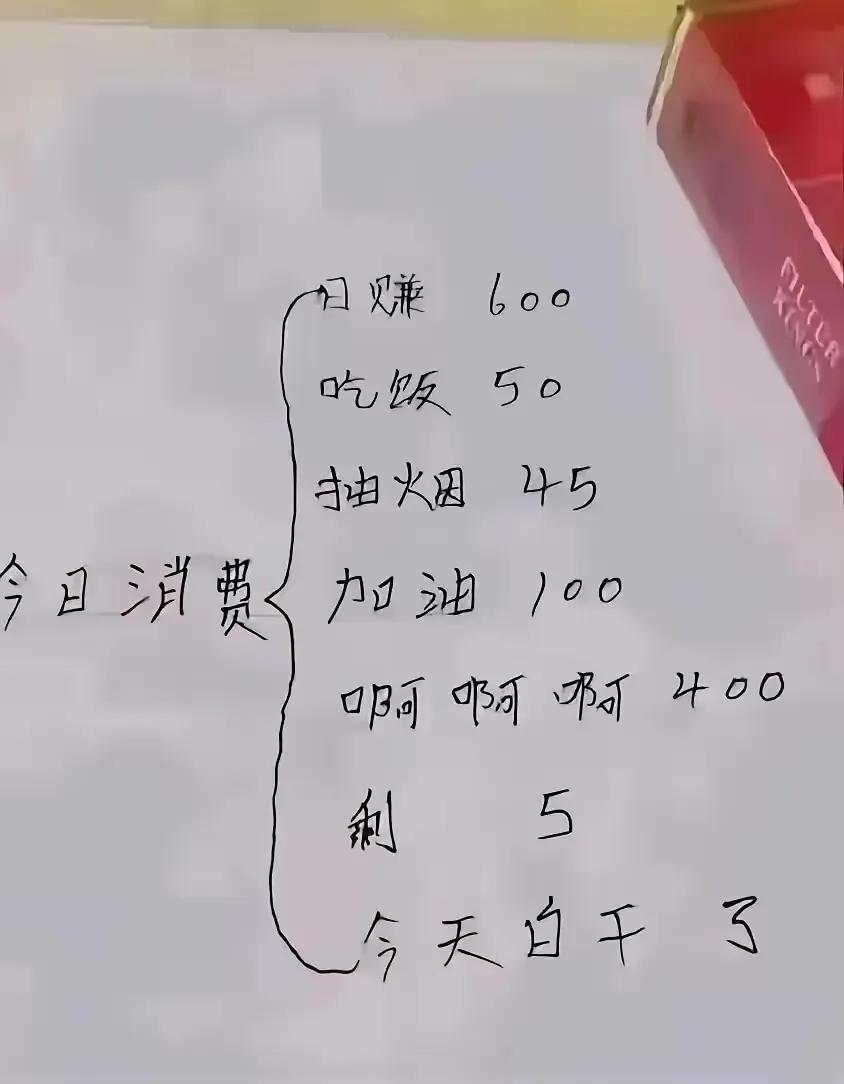 日赚 600
吃饭 50
抽烟 45
今日消费
加油 100
啊啊啊 400
剩 5
今天白干了
FILTER
KINGS